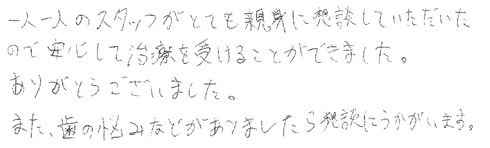 一人一人のスタッフがとても親身に相談していただいた
ので安心して治療を受けることができました。
ありがとうございました。
また、歯の悩みなどがありましたら相談にうかがいます。